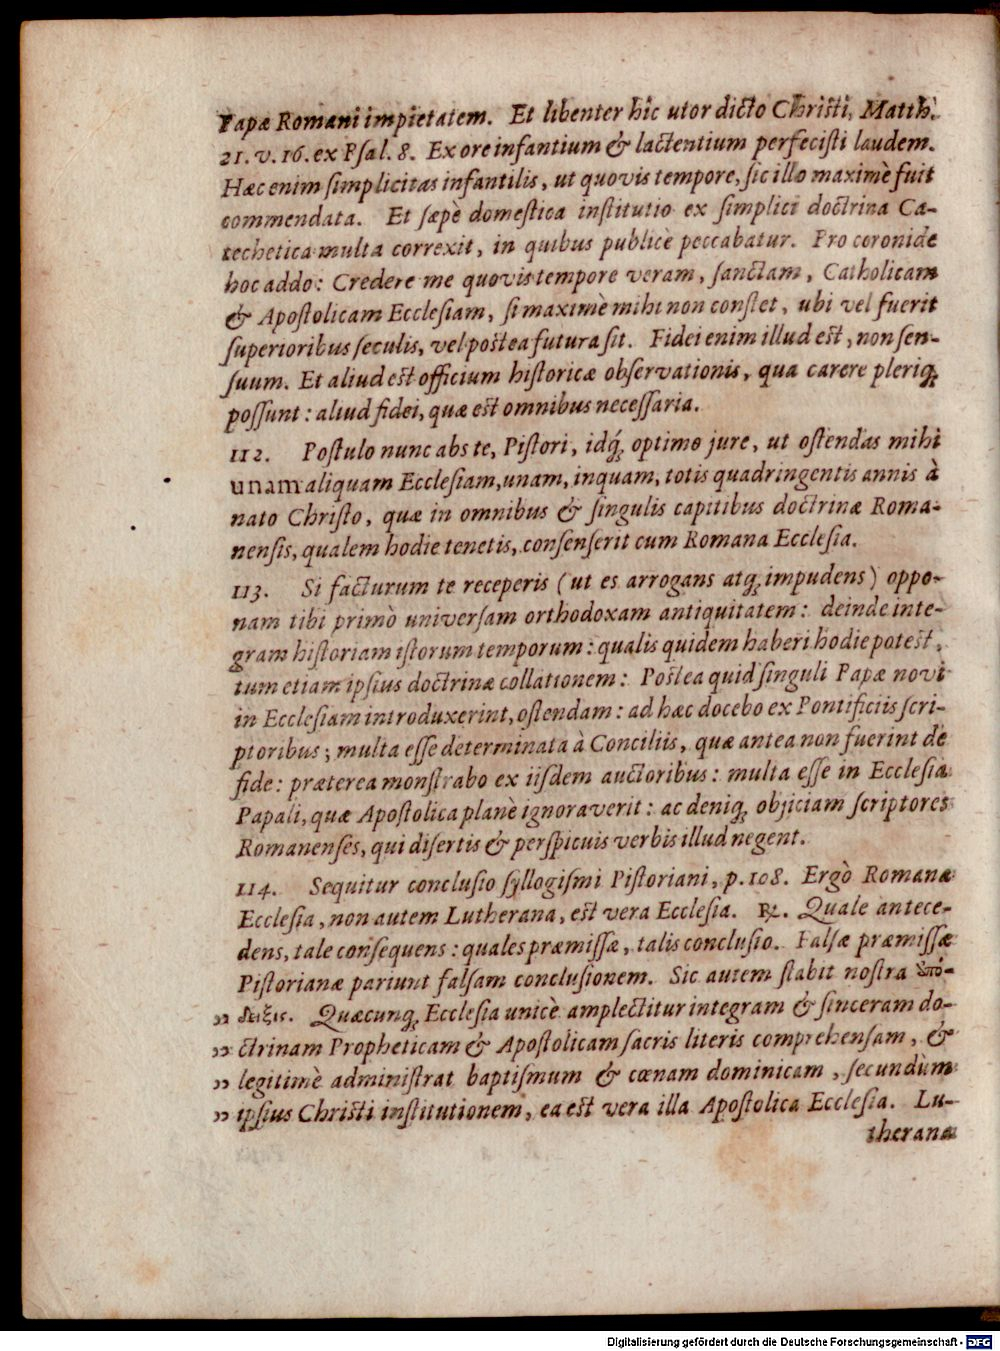 Papæ Romani impietatem. Et libenter hîc utor dicto Christi, Matth.
21. v. 16. ex Psal. 8. Ex ore infantium & lactentium perfecisti laudem.
Hæc enim simplicitas infantilis, ut quovis tempore, sic illo maximè fuit
commendata. Et sæpè domestica institutio ex simplici doctrina Ca-
techetica multa correxit, in quibus publicè peccabatur. Pro coronide
hoc addo: Credere me quovis tempore veram, sanctam, Catholicam
& Apostolicam Ecclesiam, si maximè mihi non constet, ubi vel fuerit
superioribus seculis, vel postea futura sit. Fidei enim illud est, non sen-
suum. Et aliud est officium historicæ observationis, qua carere pleriq;
possunt: aliud fidei, quæ est omnibus necessaria.
112. Postulo nunc abs te, Pistori, idq́; optimo jure, ut ostendas mihi
unam aliquam Ecclesiam, unam, inquam, totis quadringentis annis à
nato Christo, quæ in omnibus & singulis capitibus doctrinæ Roma-
nensis, qualem hodie tenetis, consenserit cum Romana Ecclesia.
113. Si facturum te receperis (ut es arrogans atq; impudens) oppo-
nam tibi primò universam orthodoxam antiquitatem: deinde inte-
gram historiam istorum temporum: qualis quidem haberi hodie potest,
tum etiam ipsius doctrinæ collationem: Postea quid singuli Papæ novi
in Ecclesiam introduxerint, ostendam: ad hæc docebo ex Pontificiis scri-
ptoribus; multa esse determinata à Conciliis, quæ antea non fuerint de
fide: præterea monstrabo ex iisdem auctoribus: multa esse in Ecclesia
Papali, quæ Apostolica planè ignoraverit: ac deniq; objiciam scriptores
Romanenses, qui disertis & perspicuis verbis illud negent.
114. Sequitur conclusio syllogismi Pistoriani, p. 108. Ergò Romana
Ecclesia, non autem Lutherana, est vera Ecclesia. ℞. Quale antece-
dens, tale consequens: quales præmissæ, talis conclusio. Falsæ præmissæ
Pistorianæ pariunt falsam conclusionem. Sic autem stabit nostra ἀπό-
„ δειξις. Quæcunq; Ecclesia unicè amplectitur integram & sinceram do-
„ ctrinam Propheticam & Apostolicam sacris literis comprehensam, &
„ legitimè administrat baptismum & cœnam dominicam, secundùm
„ ipsius Christi institutionem, ea est vera illa Apostolica Ecclesia. Lu-
therana
Digitalisierung gefördert durch die Deutsche Forschungsgemeinschaft - DFG